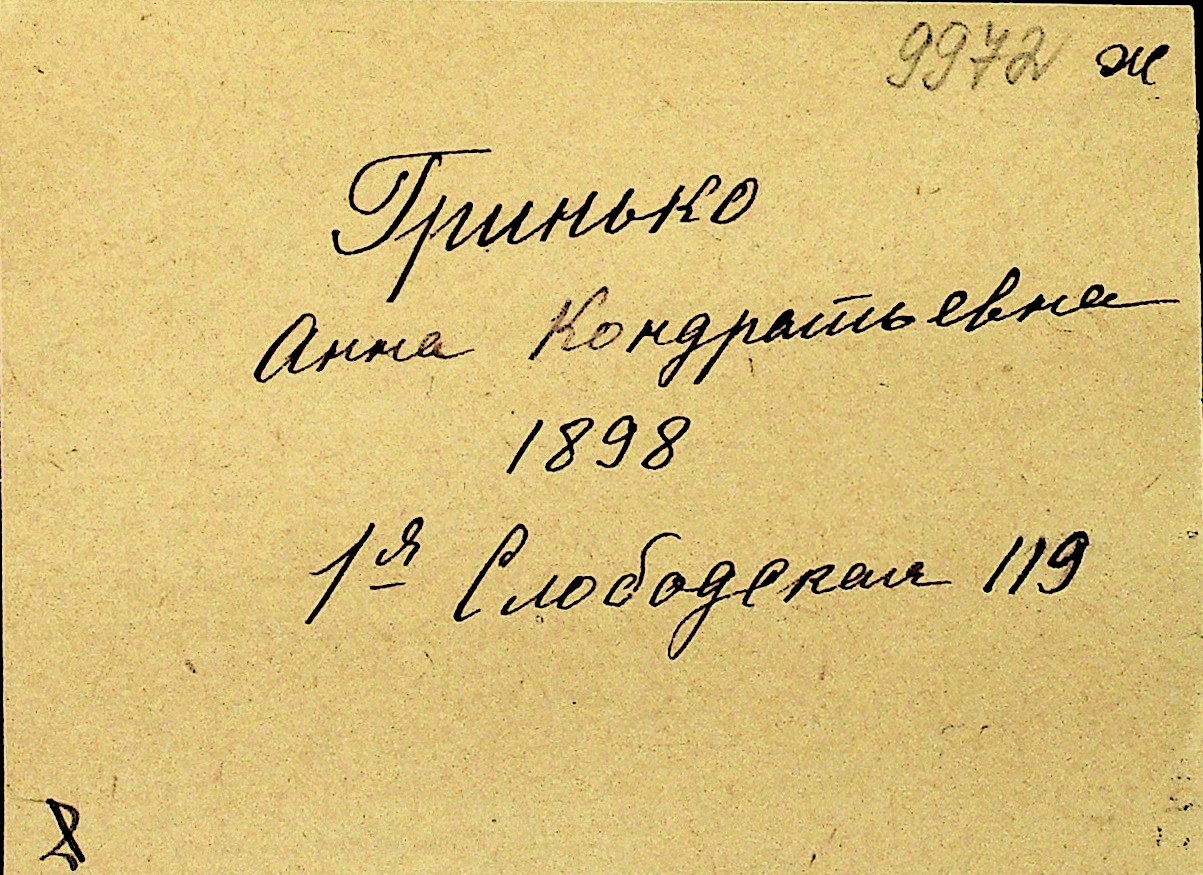 9972 ж
Гринько
Анна Кондратьевна
1898
1я Слободская 119